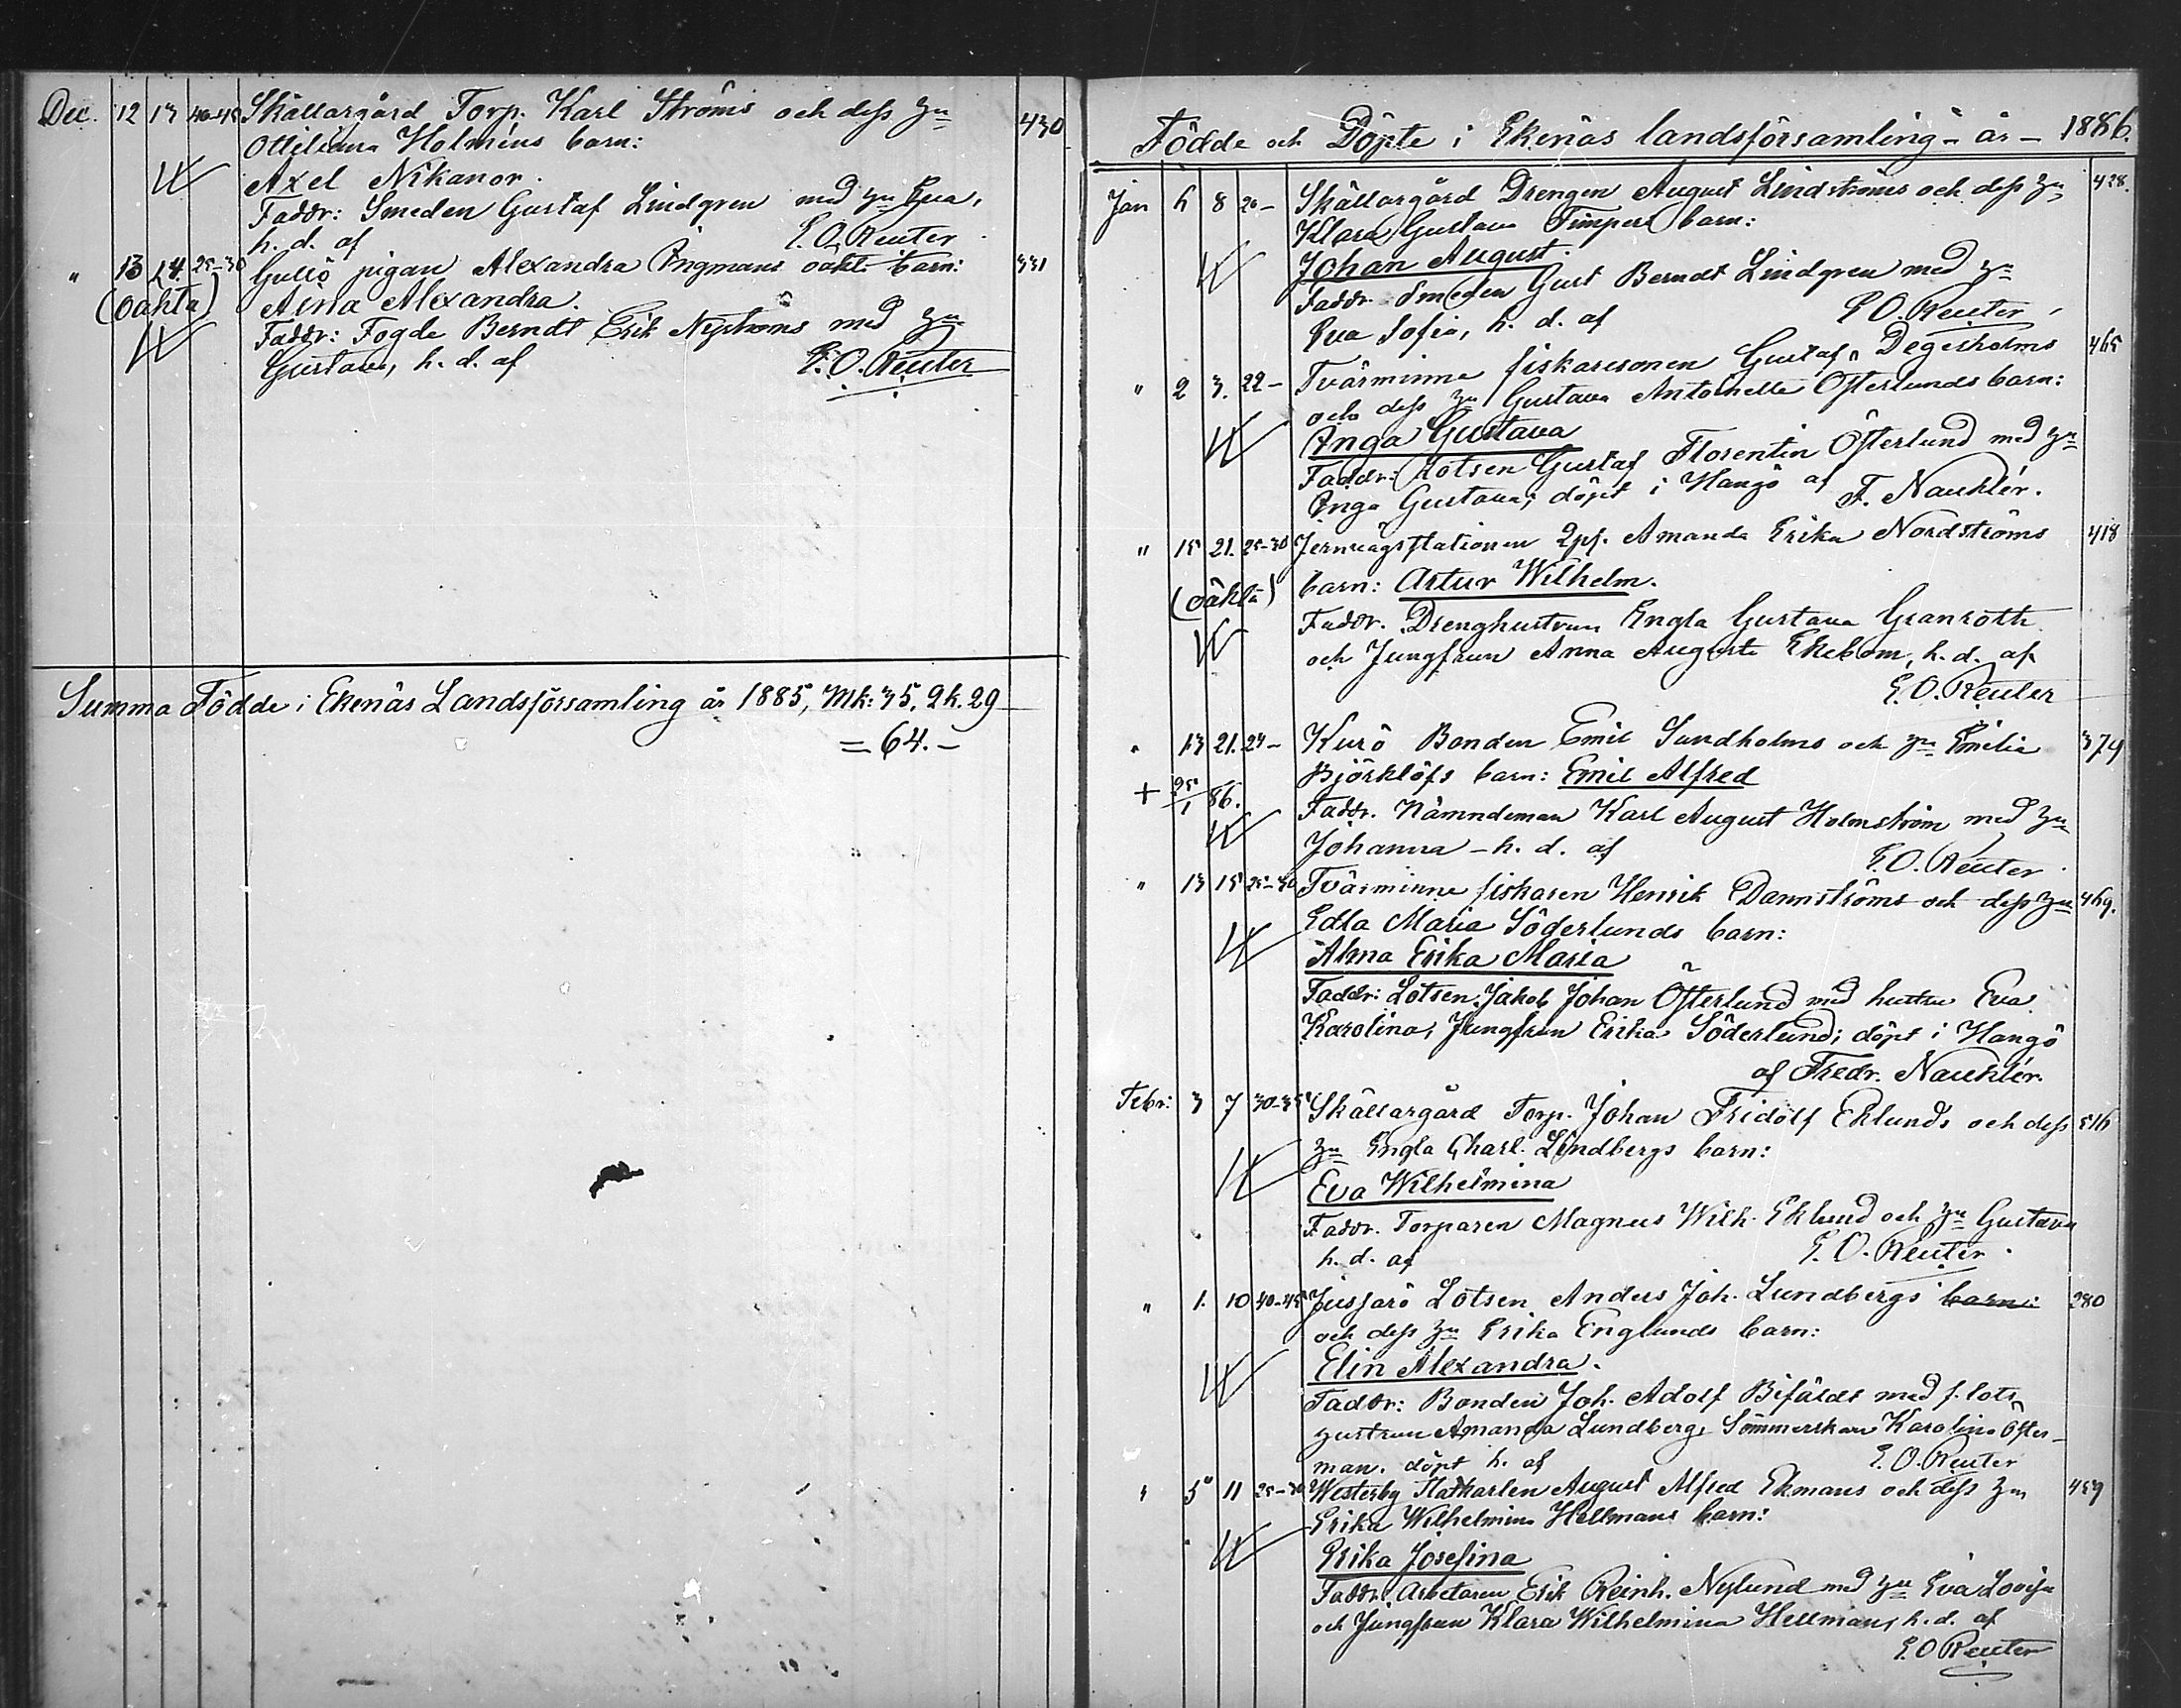 Dec. 12 13 40-45 Skällargård Torp. Karl Ströms och dess hu 430
Ottiliana Holméns barn:
Axel Nikanor.
Faddr: Smeden Gustaf Lindgren med hu Eva,
h. d. af E. O. Reuter
" 13 14. 25-30 Gullö pigan Alexandra Ingmans oäkt. barn: 331
(oäkta) Alma Alexandra.
Faddr: Fogde Berndt Erik Nyströms med hu
Gustava, h. d. af E. O. Reuter
Summa Födde i Ekenäs Landsförsamling år 1885, Mk: 35, Qk. 29
= 64. -
Födde och Döpte i Ekenäs landsförsamling - år - 1886.
Jan 6 8 20- Skällargård Drengen August Lindströms och dess hu 428.
Klara Gustava Timpers barn:
Johan August.
Faddr. Smeden Gust Berndt Lindgren med hu
Eva Sofia, h. d. af E. O. Reuter
" 2 3. 22- Tvärminne fiskaresonen Gustaf Degerholms 465
och dess hu Gustava Antoinette Österlunds barn:
Inga Gustava
Faddr: Lotsen Gustaf Florentin Österlund med hu
Inga Gustava; döpt i Hangö af F. Nauklér.
" 15 21. 25-30 Jernvägsstationen Qpf. Amanda Erika Nordströms 418
(oäkta) barn: Artur Wilhelm.
Faddr. Drenghustrun Engla Gustava Granroth
och Jungfrun Anna Augusta Ekebom, h. d. af
E. O. Reuter
" 13 21. 24- Kurö Bonden Emil Sundholms och hu Emilia 374
+ 25/1 86. Björklöfs barn: Emil Alfred
Faddr. Nämndeman Karl August Holmström med hu
Johanna - h. d. af E. O. Reuter
" 13 15 25-30 Tvärminne fiskaren Henrik Dannströms och dess hu 469.
Edla Maria Söderlunds barn:
Alma Erika Maria
Faddr: Lotsen Jakob Johan Österlund med hustru Eva
Karolina, Jungfrun Erika Söderlund; döpt i Hangö
af Fredr. Nauklér.
Febr: 3 7 30-35 Skällargård Torp. Johan Fridolf Eklunds och dess 516
hu Engla Charl. Lindbergs barn:
Eva Wilhelmina
Faddr. Torparen Magnus Wilh. Eklund och hu Gustava
h. d. af E. O. Reuter.
" 1. 10 40-45 Jussarö Lotsen Anders Joh. Lundbergs barn: 280
och dess hu Erika Englunds barn:
Elin Alexandra.
Faddr: Bonden Joh. Adolf Bifäldt med f. lots
hustrun Amanda Lundberg, Sömmerskan Karolina Öster-
man. döpt h. af E. O. Reuter
" 5 11 25-30 Westerby Statkarlen August Alfred Ekmans och dess hu 459
Erika Wilhelmina Hellmans barn:
Erika Josefina
Faddr. Arbetaren Erik Reinh. Nylund med hu Eva Lovisa
och Jungfrun Klara Wilhelmina Hellman, h. d. af
E. O Reuter